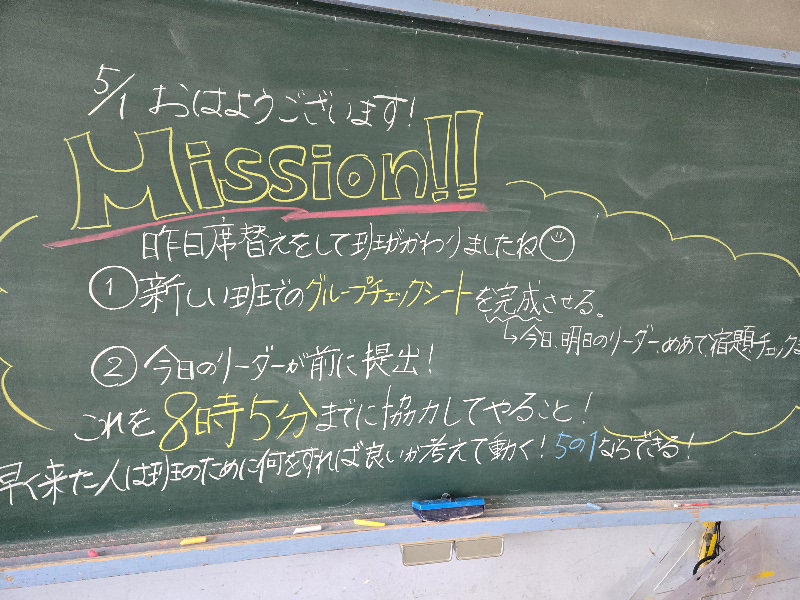 5/1 おはようございます!
Mission!!
昨日席替えをして班がかわりましたね
① 新しい班でのグループチェックシートを完成させる。
↳今日、明日のリーダー、めあて宿題チェックま
② 今日のリーダーが前に提出!
これを8時5分までに協力してやること!
早く来た人は班のために何をすれば良いか考えて動く!5の1ならできる!